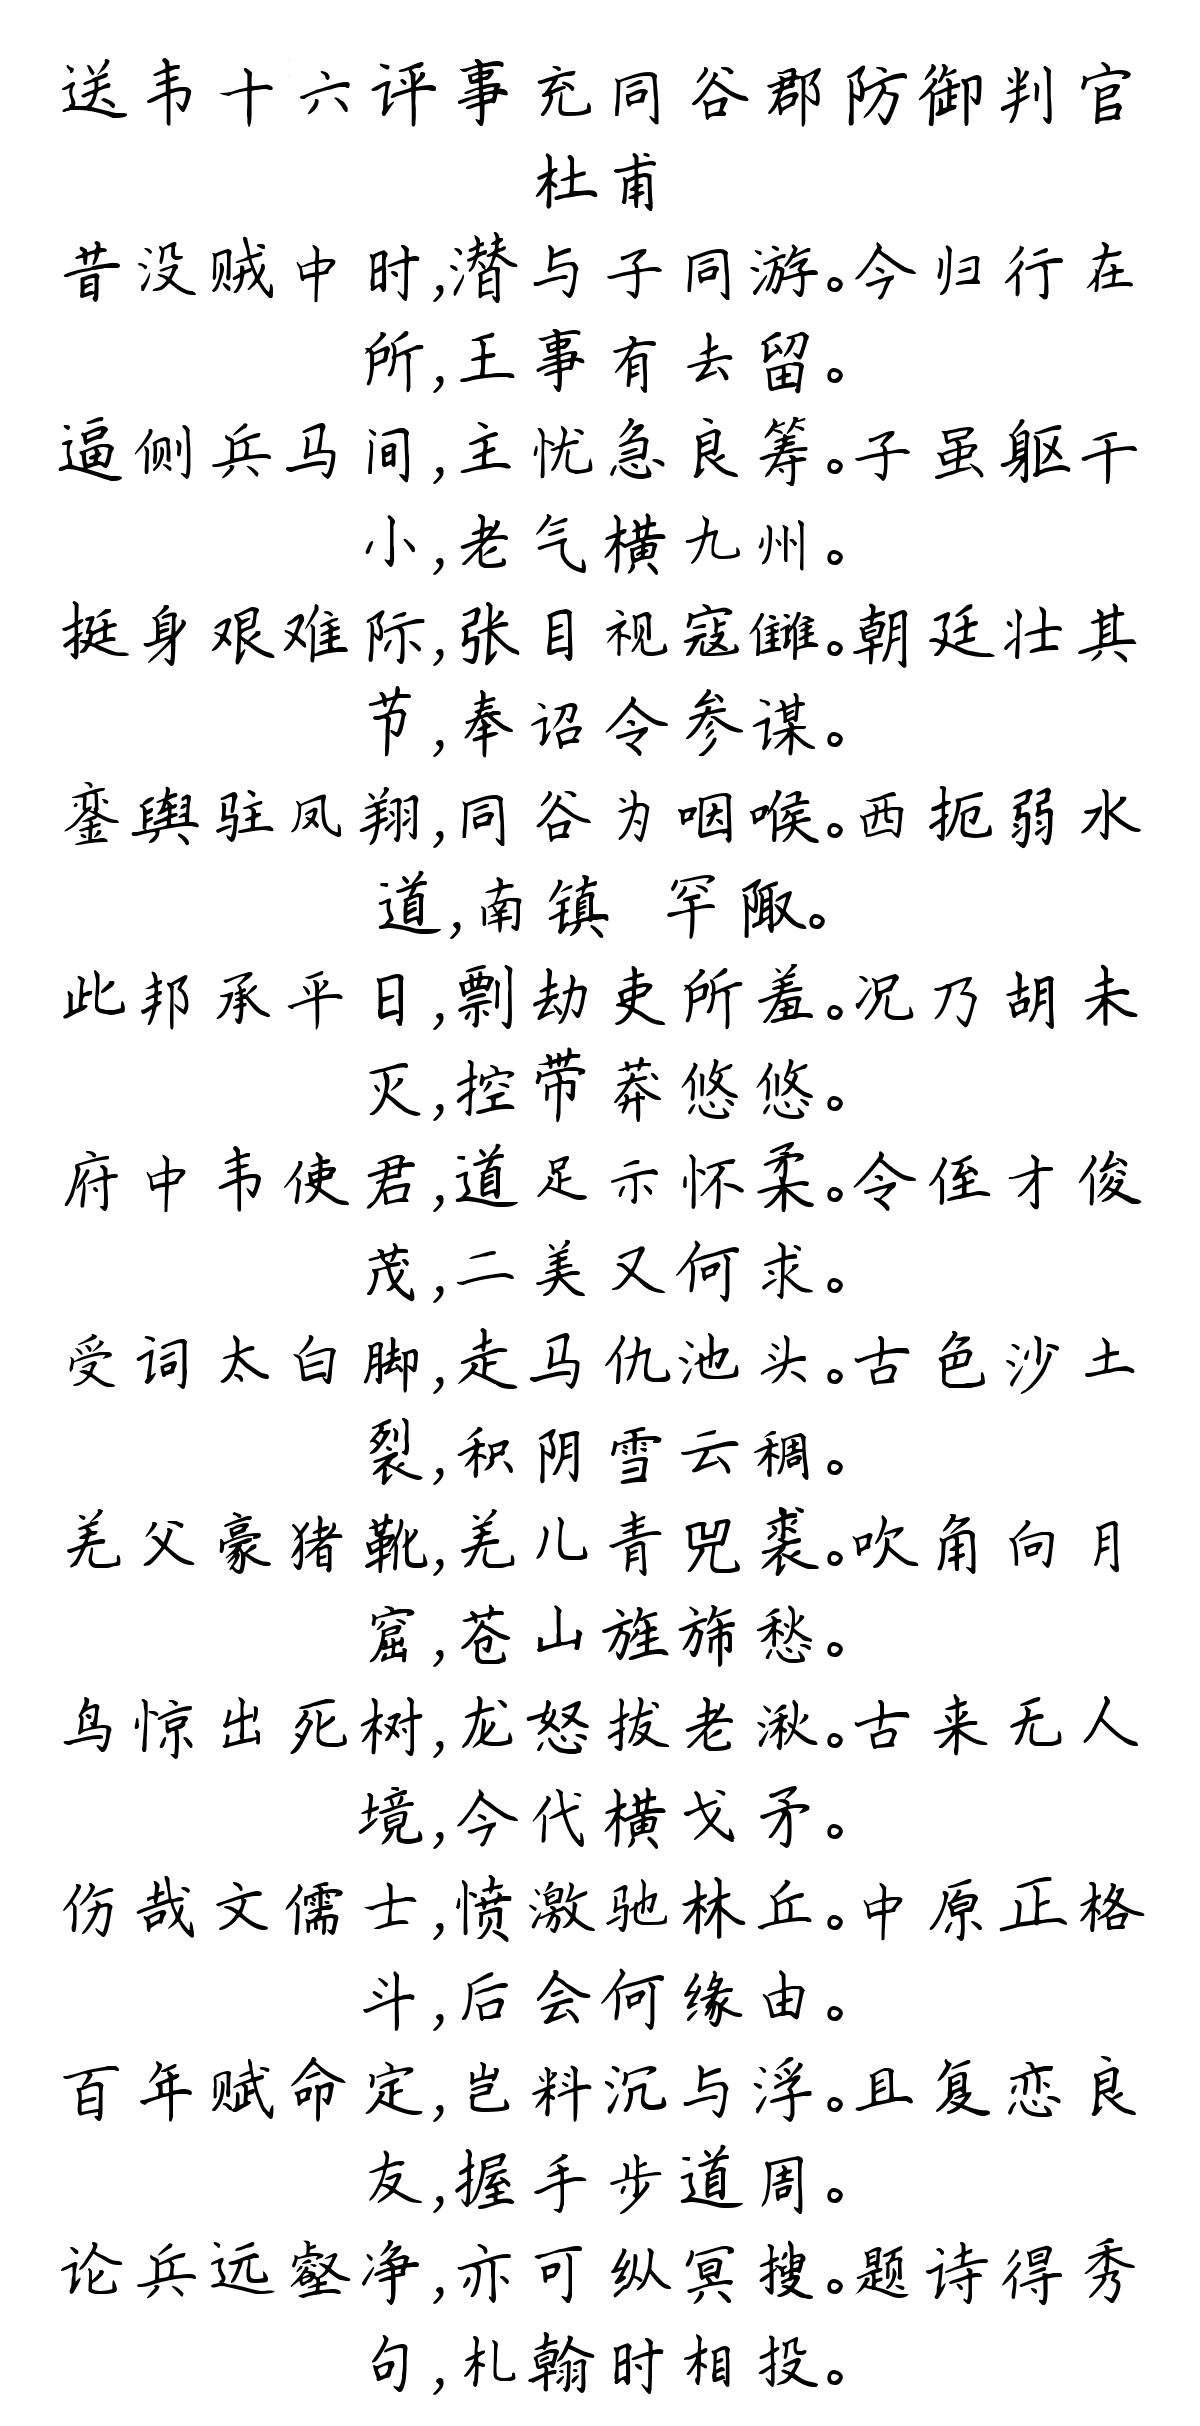 送韦十六评事充同谷郡防御判官
杜甫
昔没贼中时,潜与子同游。今归行在
所,王事有去留。
逼侧兵马间,主忧急良筹。子虽躯干
小,老气横九州。
挺身艰难际,张目视寇雠。朝廷壮其
节,奉诏令参谋。
銮舆驻凤翔,同谷为咽喉。西扼弱水
道,南镇 罕陬。
此邦承平日,剽劫吏所羞。况乃胡未
灭,控带莽悠悠。
府中韦使君,道足示怀柔。令侄才俊
茂,二美又何求。
受词太白脚,走马仇池头。古色沙土
裂,积阴雪云稠。
羌父豪猪靴,羌儿青兕裘。吹角向月
窟,苍山旌旆愁。
鸟惊出死树,龙怒拔老湫。古来无人
境,今代横戈矛。
伤哉文儒士,愤激驰林丘。中原正格
斗,后会何缘由。
百年赋命定,岂料沉与浮。且复恋良
友,握手步道周。
论兵远壑净,亦可纵冥搜。题诗得秀
句,札翰时相投。